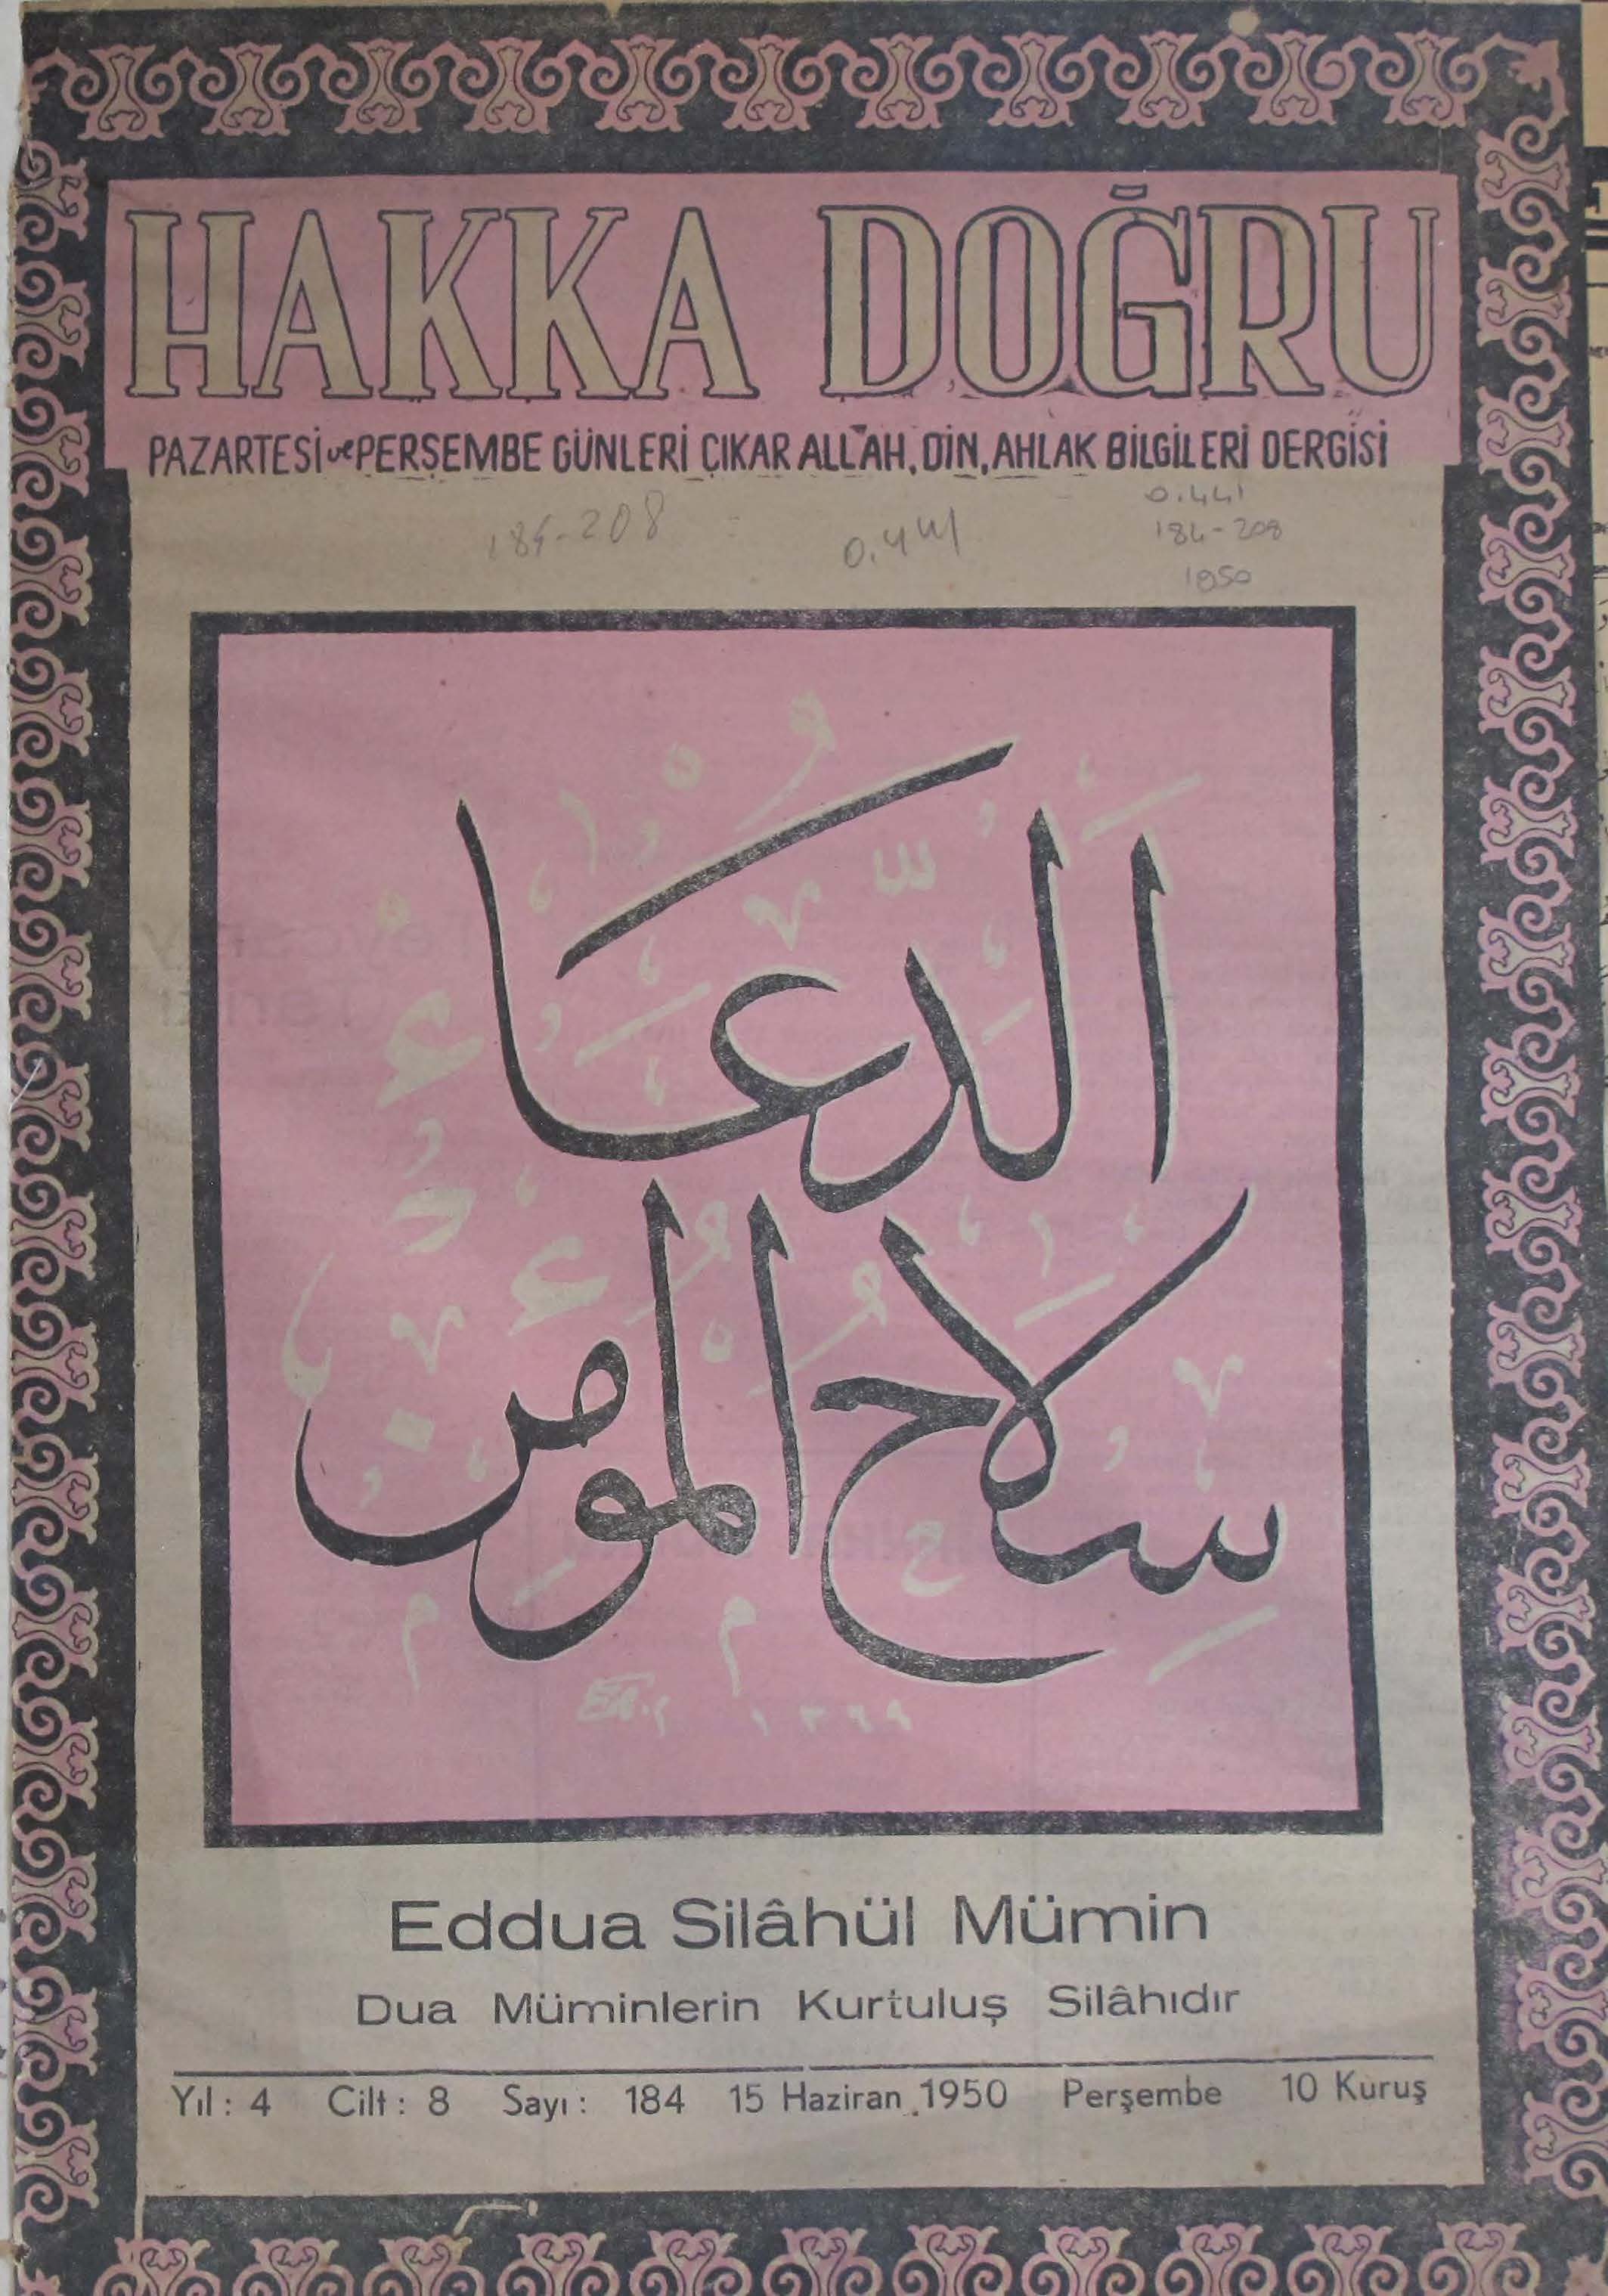 HAKKA DOĞRU
PAZARTESİ ve PERŞEMBE GÜNLERİ ÇIKAR ALLAH, DİN, AHLAK BİLGİLERİ DERGİSİ
0.441
184-208 0.441 184-208
1950
اَلدُّعَاءُ
سِلَاحُ الْمُؤْمِنِ
١٣٦٩
Eddua Silâhül Mümin
Dua Müminlerin Kurtuluş Silâhıdır
Yıl : 4 Cilt : 8 Sayı : 184 15 Haziran 1950 Perşembe 10 Kuruş